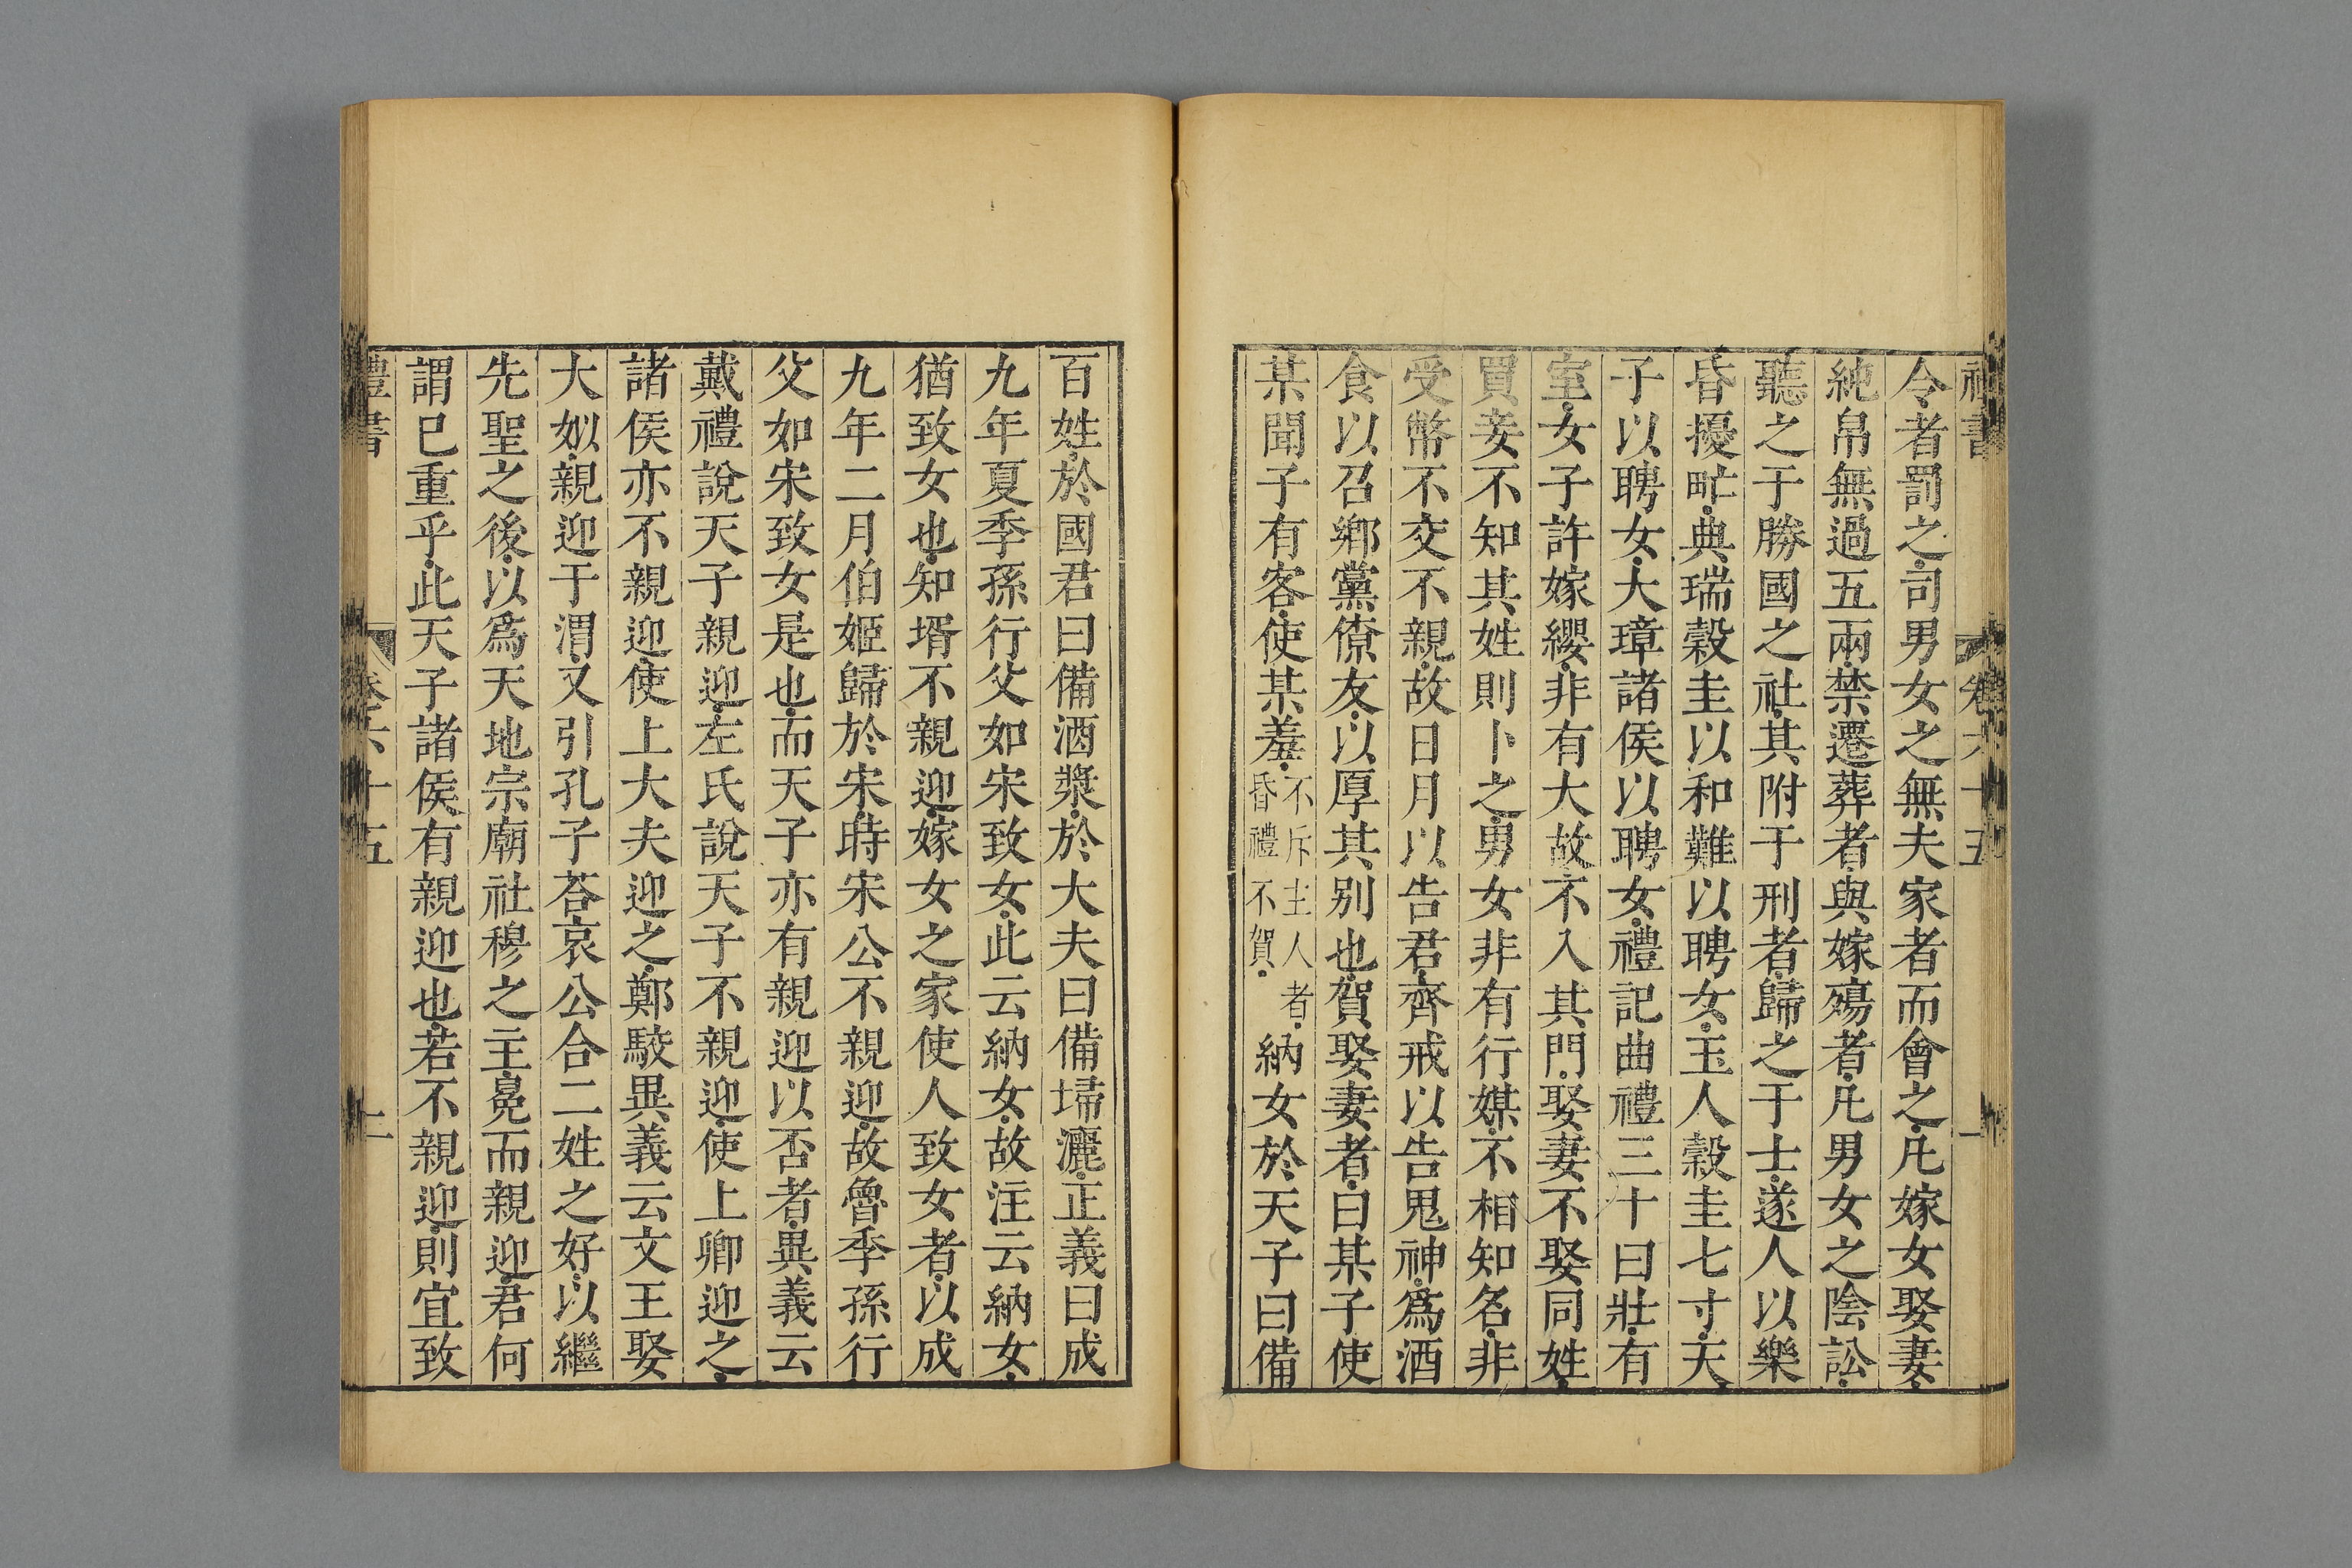 令者罰之司男女之無夫家者而會之凡嫁女娶妻
純帛無過五兩禁遷葬者與嫁殤者凡男女之陰訟
聽之于勝國之社其附于刑者歸之于士遂人以樂
昏擾甿典瑞穀圭以和難以聘女玉人穀圭七寸天
子以聘女大璋諸侯以聘女禮記曲禮三十曰壯有
室女子許嫁纓非有大故不入其門娶妻不娶同姓
買妾不知其姓則卜之男女非有行媒不相知名非
受幣不交不親故日月以告君齊戒以告鬼神爲酒
食以召鄉黨僚友以厚其别也賀娶妻者曰某子使
某聞子有客使某羞不斥主人者昏禮不賀納女於天子曰備
百姓於國君曰備酒漿於大夫曰備埽灑正義曰成
九年夏季孫行父如宋致女此云納女故注云納女
猶致女也知壻不親迎嫁女之家使人致女者以成
九年二月伯姬歸於宋時宋公不親迎故魯季孫行
父如宋致女是也而天子亦有親迎以否者異義云
戴禮說天子親迎左氏說天子不親迎使上卿迎之
諸侯亦不親迎使上大夫迎之鄭駁異義云文王娶
大姒親迎于渭又引孔子荅哀公合二姓之好以繼
先聖之後以爲天地宗廟社稷之主冕而親迎君何
謂已重乎此天子諸侯有親迎也若不親迎則宜致
禮書 卷六十五 二